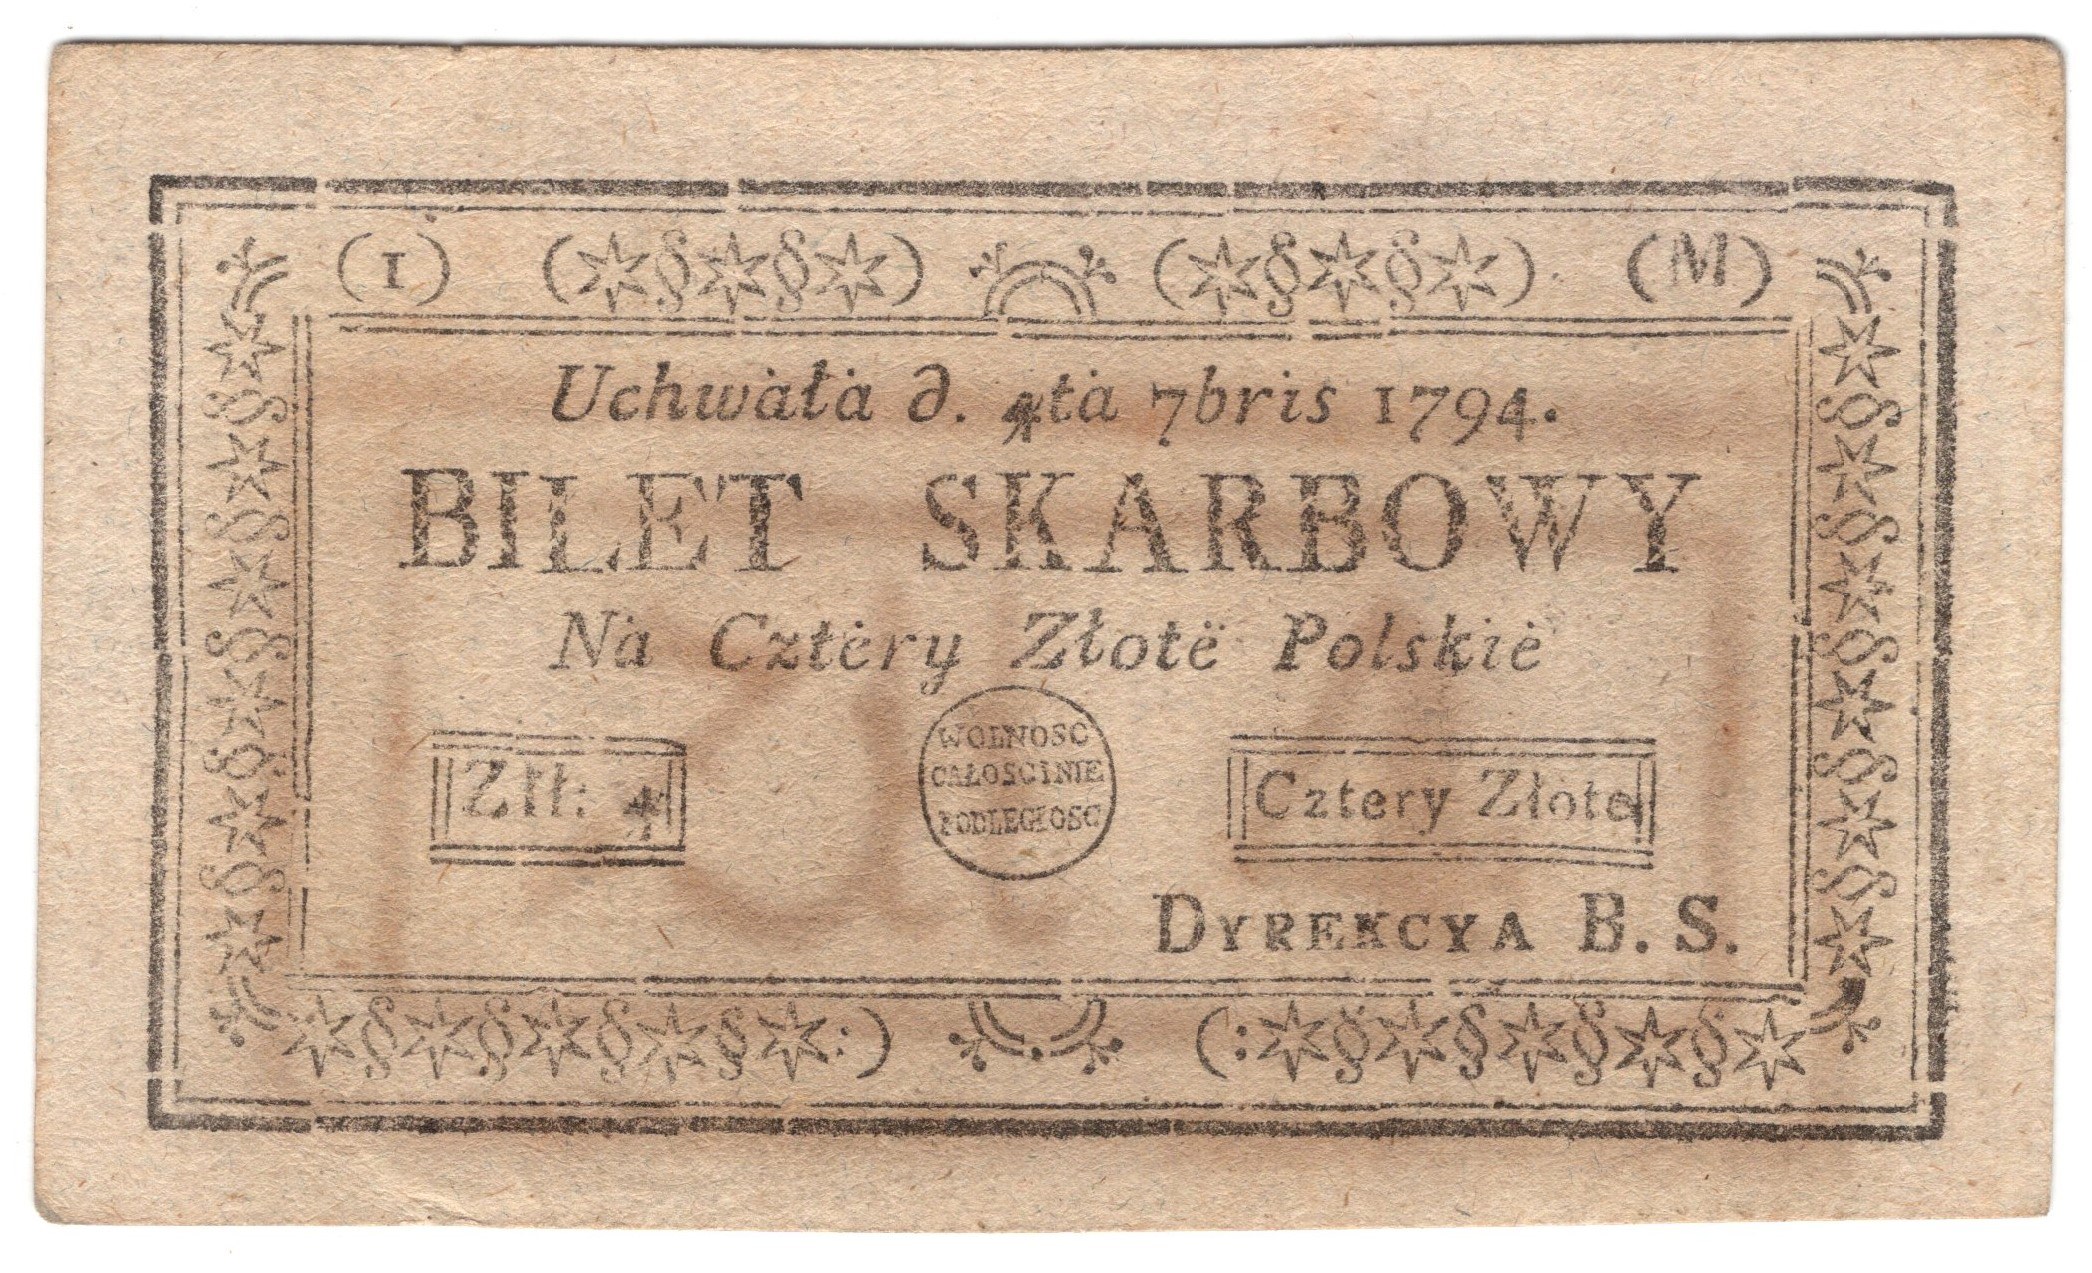 (1) (M)
Uchwała d. 4ta 7bris 1794.
BILET SKARBOWY
Na Cztery Złote Polskie
Złł: 4
WOLNOSC
CAŁOSCINIE
PODLEGŁOSC
Cztery Złote
DYREKCYA B. S.